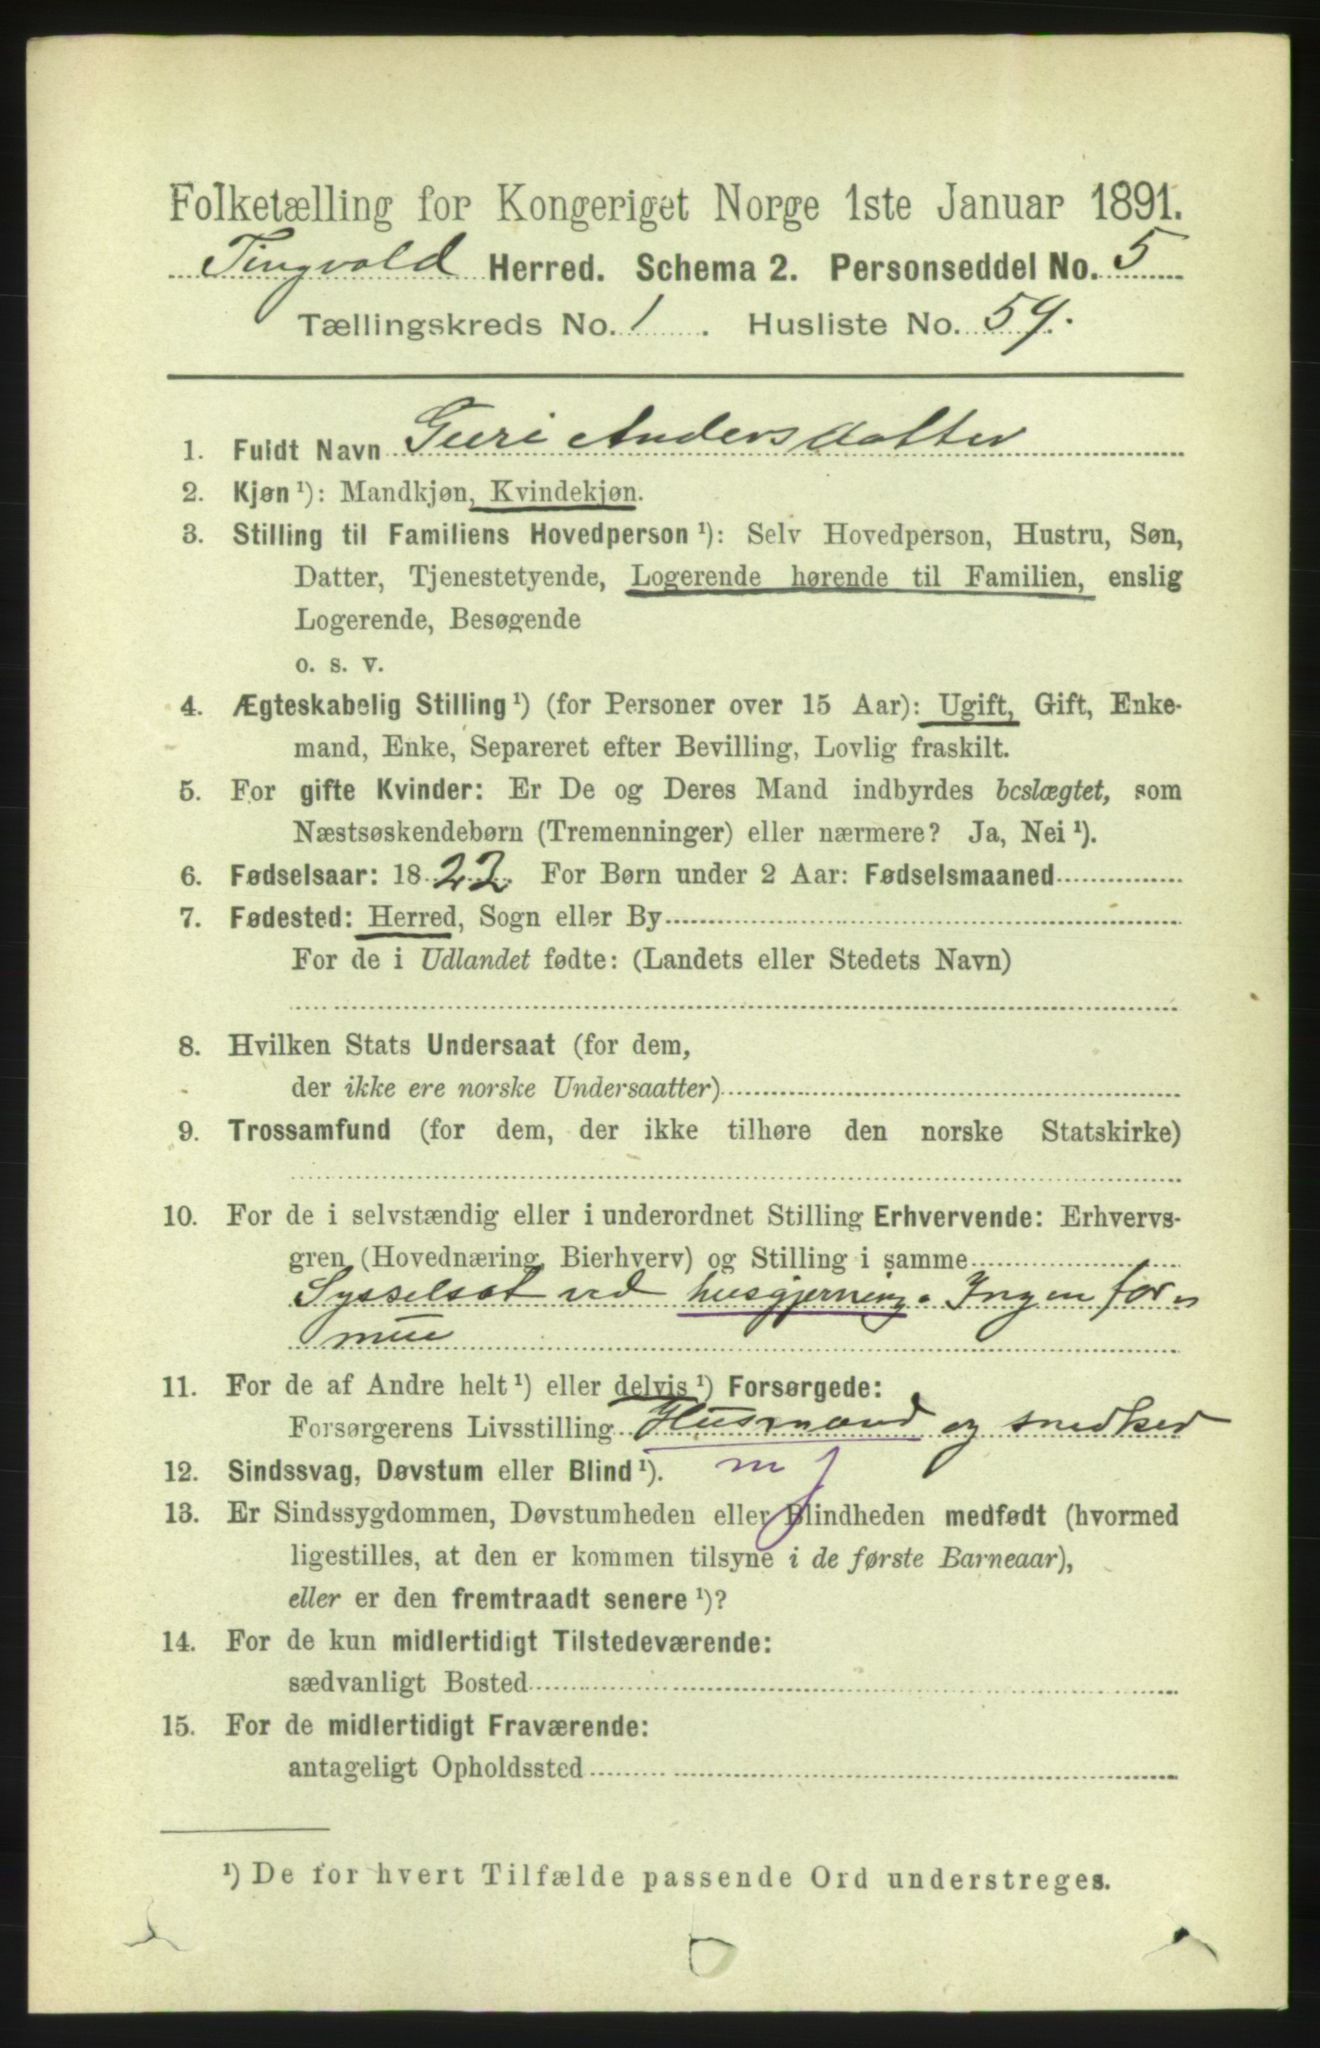 Folketælling for Kongeriget Norge 1ste Januar 1891.
Tingvold Herred. Schema 2. Personseddel No. 5
Tællingskreds No. 1. Husliste No. 59.
1. Fuldt Navn Guri Andersdatter
2. Kjøn ¹): Mandkjøn, Kvindekjøn.
3. Stilling til Familiens Hovedperson ¹): Selv Hovedperson, Hustru, Søn,
Datter, Tjenestetyende, Logerende hørende til Familien, enslig
Logerende, Besøgende
o. s. v.
4. Ægteskabelig Stilling ¹) (for Personer over 15 Aar): Ugift, Gift, Enke-
mand, Enke, Separeret efter Bevilling, Lovlig fraskilt.
5. For gifte Kvinder: Er De og Deres Mand indbyrdes beslægtet, som
Næstsøskendebørn (Tremenninger) eller nærmere? Ja, Nei ¹).
6. Fødselsaar: 1822. For Børn under 2 Aar: Fødselsmaaned
7. Fødested: Herred, Sogn eller By
For de i Udlandet fødte: (Landets eller Stedets Navn)
8. Hvilken Stats Undersaat (for dem,
der ikke ere norske Undersaatter)
9. Trossamfund (for dem, der ikke tilhøre den norske Statskirke)
10. For de i selvstændig eller i underordnet Stilling Erhvervende: Erhvervs-
gren (Hovednæring, Bierhverv) og Stilling i samme
Sysselsat ved husgjerning. Ingen for-
mue
11. For de af Andre helt ¹) eller delvis ¹) Forsørgede:
Forsørgerens Livsstilling Husmand og snedker
12. Sindssvag, Døvstum eller Blind ¹). m f
13. Er Sindssygdommen, Døvstumheden eller Blindheden medfødt (hvormed
ligestilles, at den er kommen tilsyne i de første Barneaar),
eller er den fremtraadt senere ¹)?
14. For de kun midlertidigt Tilstedeværende:
sædvanligt Bosted
15. For de midlertidigt Fraværende:
antageligt Opholdssted
¹) De for hvert Tilfælde passende Ord understreges.